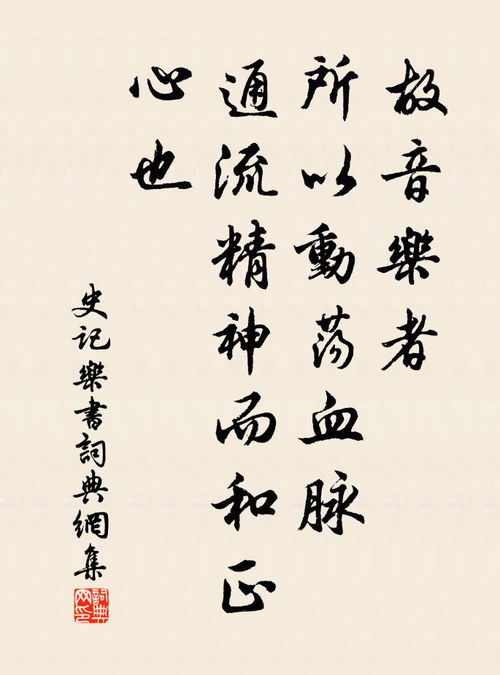 故音樂者
所以動荡血脉
通流精神而和正
心也
史记樂書詞典網集
詞典网印